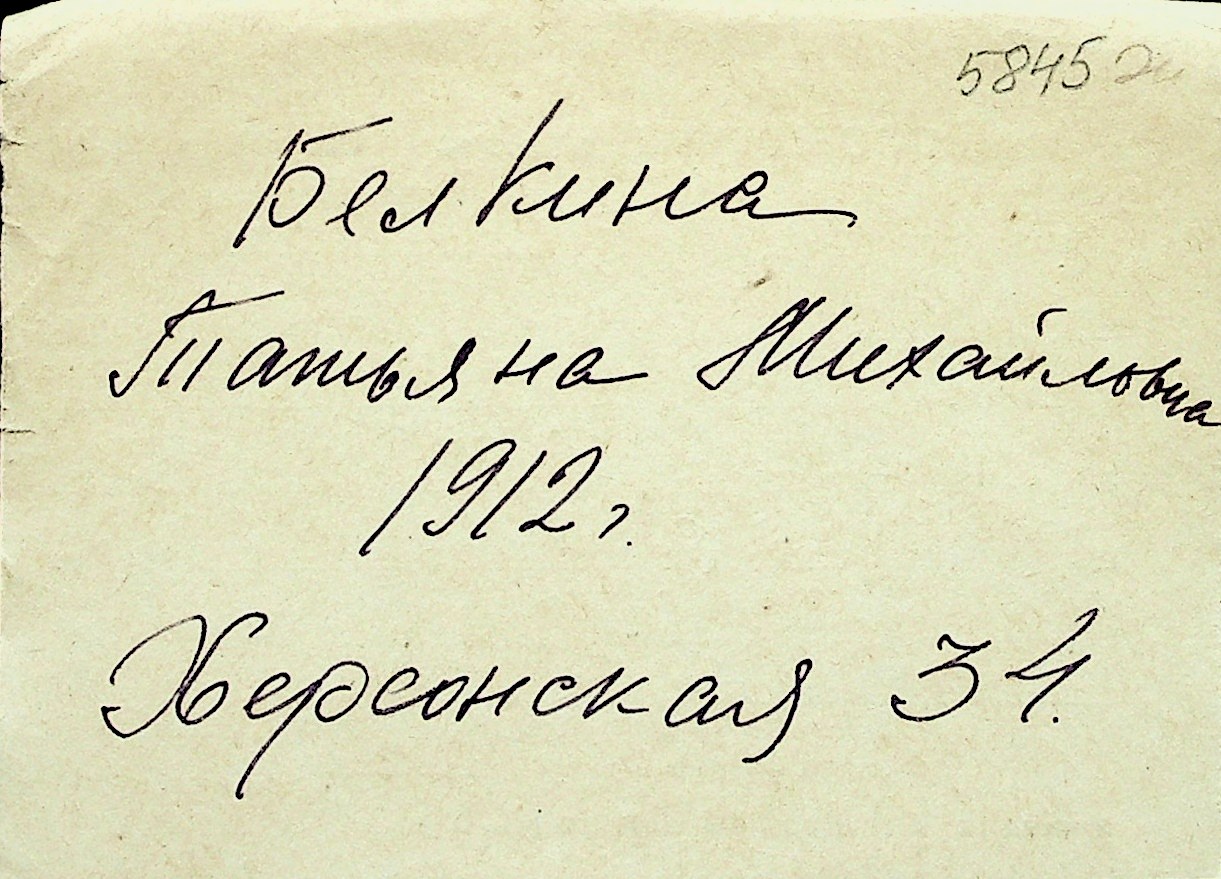 5845
Белкина
Татьяна Михайловна
1912 г.
Херсонская 34.